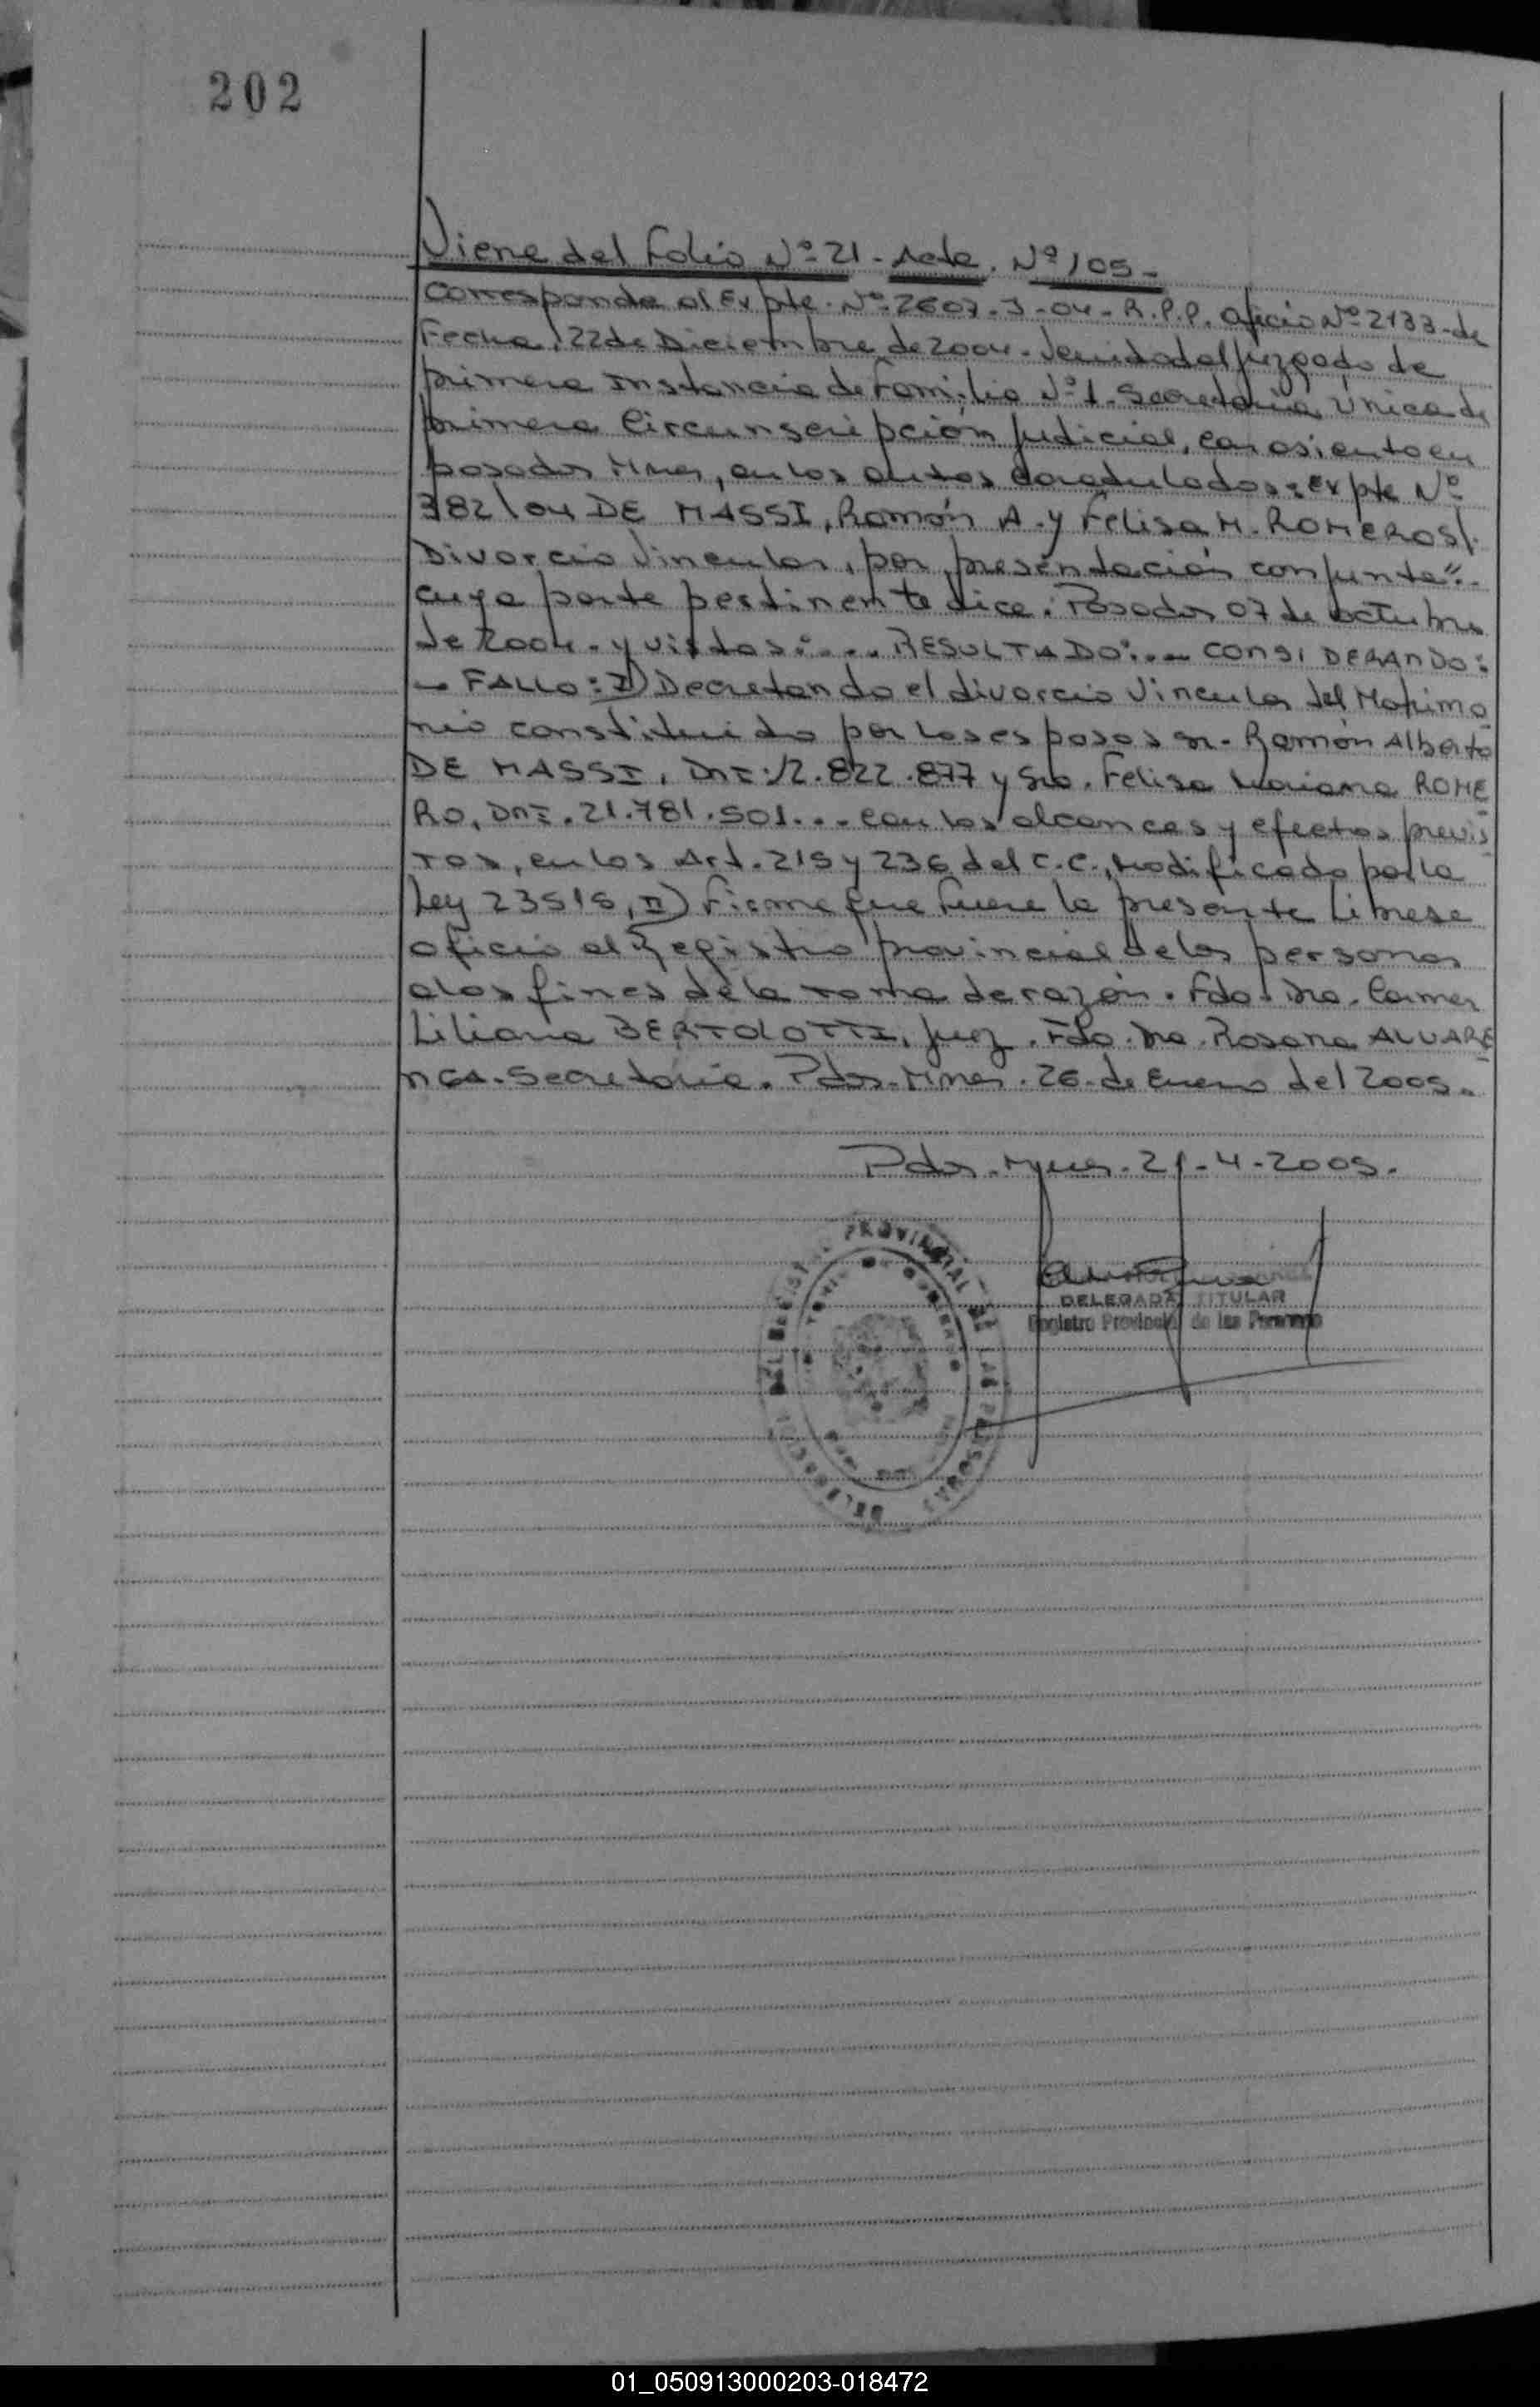 202
Viene del Folio Nº 21 - Acta. Nº 105 -
Corresponde al Expte. Nº 2607 - J - 04 - R.P.P. Oficio Nº 2133 - de
Fecha, 22 de Diciembre de 2004 - Venido del Juzgado de
primera Instancia de Familia Nº 1 - Secretaría Única de
primera Circunscripción Judicial, con asiento en
posadas Mnes, en los autos caratulados: Expte Nº
382/04 DE MASSI, Ramón A. y Felisa M. ROMERO S/.
Divorcio Vincular, por presentación conjunta"..
cuya parte pertinente dice: Posadas 07 de octubre
de 2004. y vistos: .... RESULTADO: ... CONSIDERANDO:
- FALLO: I) Decretando el divorcio Vincular del Matrimo
nio constituido por los esposos Sr. Ramón Alberto
DE MASSI, DNI: 12.822.877 y Sra. Felisa Mariana ROME
RO, DNI. 21.781.501... con los alcances y efectos previs
tos, en los Art. 215 y 236 del C.C., Modificado por la
Ley 23515, II) Firme que fuere la presente Librese
oficio al Registro provincial de las personas
a los fines de la toma de razón. Fdo. Dra. Carmen
Liliana BERTOLOTTI, Juez. Fdo. Dra. Rosana ALVARE
NGA. Secretaria. Pdas. Mnes. 26 de Enero del 2005.
Pdas. Mnes. 21-4-2005.
PROVINCIAL DE LAS PERSONAS
DELEGADA TITULAR
Registro Provincial de las Personas
01_050913000203-018472